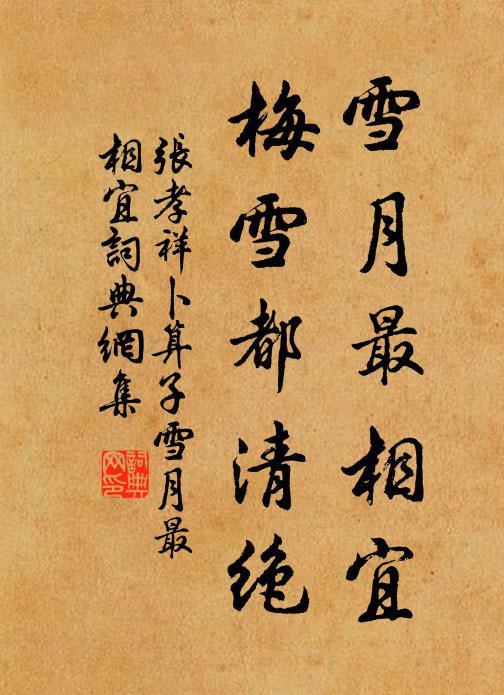 雪月最相宜
梅雪都清绝
張孝祥卜算子雪月最
相宜詞典網集
詞典网印